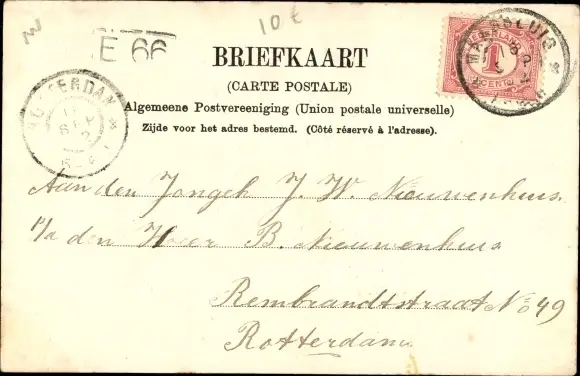 10 €
E 66
BRIEFKAART
(CARTE POSTALE)
Algemeene Postvereeniging (Union postale universelle)
Zijde voor het adres bestemd. (Côté réservé à l'adresse).
NEDERLAND
1
CENT
MAASSLUIS
ROTTERDAM
Aan den Jongeh J. W. Nieuwenhuis
p/a den Heer B. Nieuwenhuis
Rembrandtstraat No 49
Rotterdam